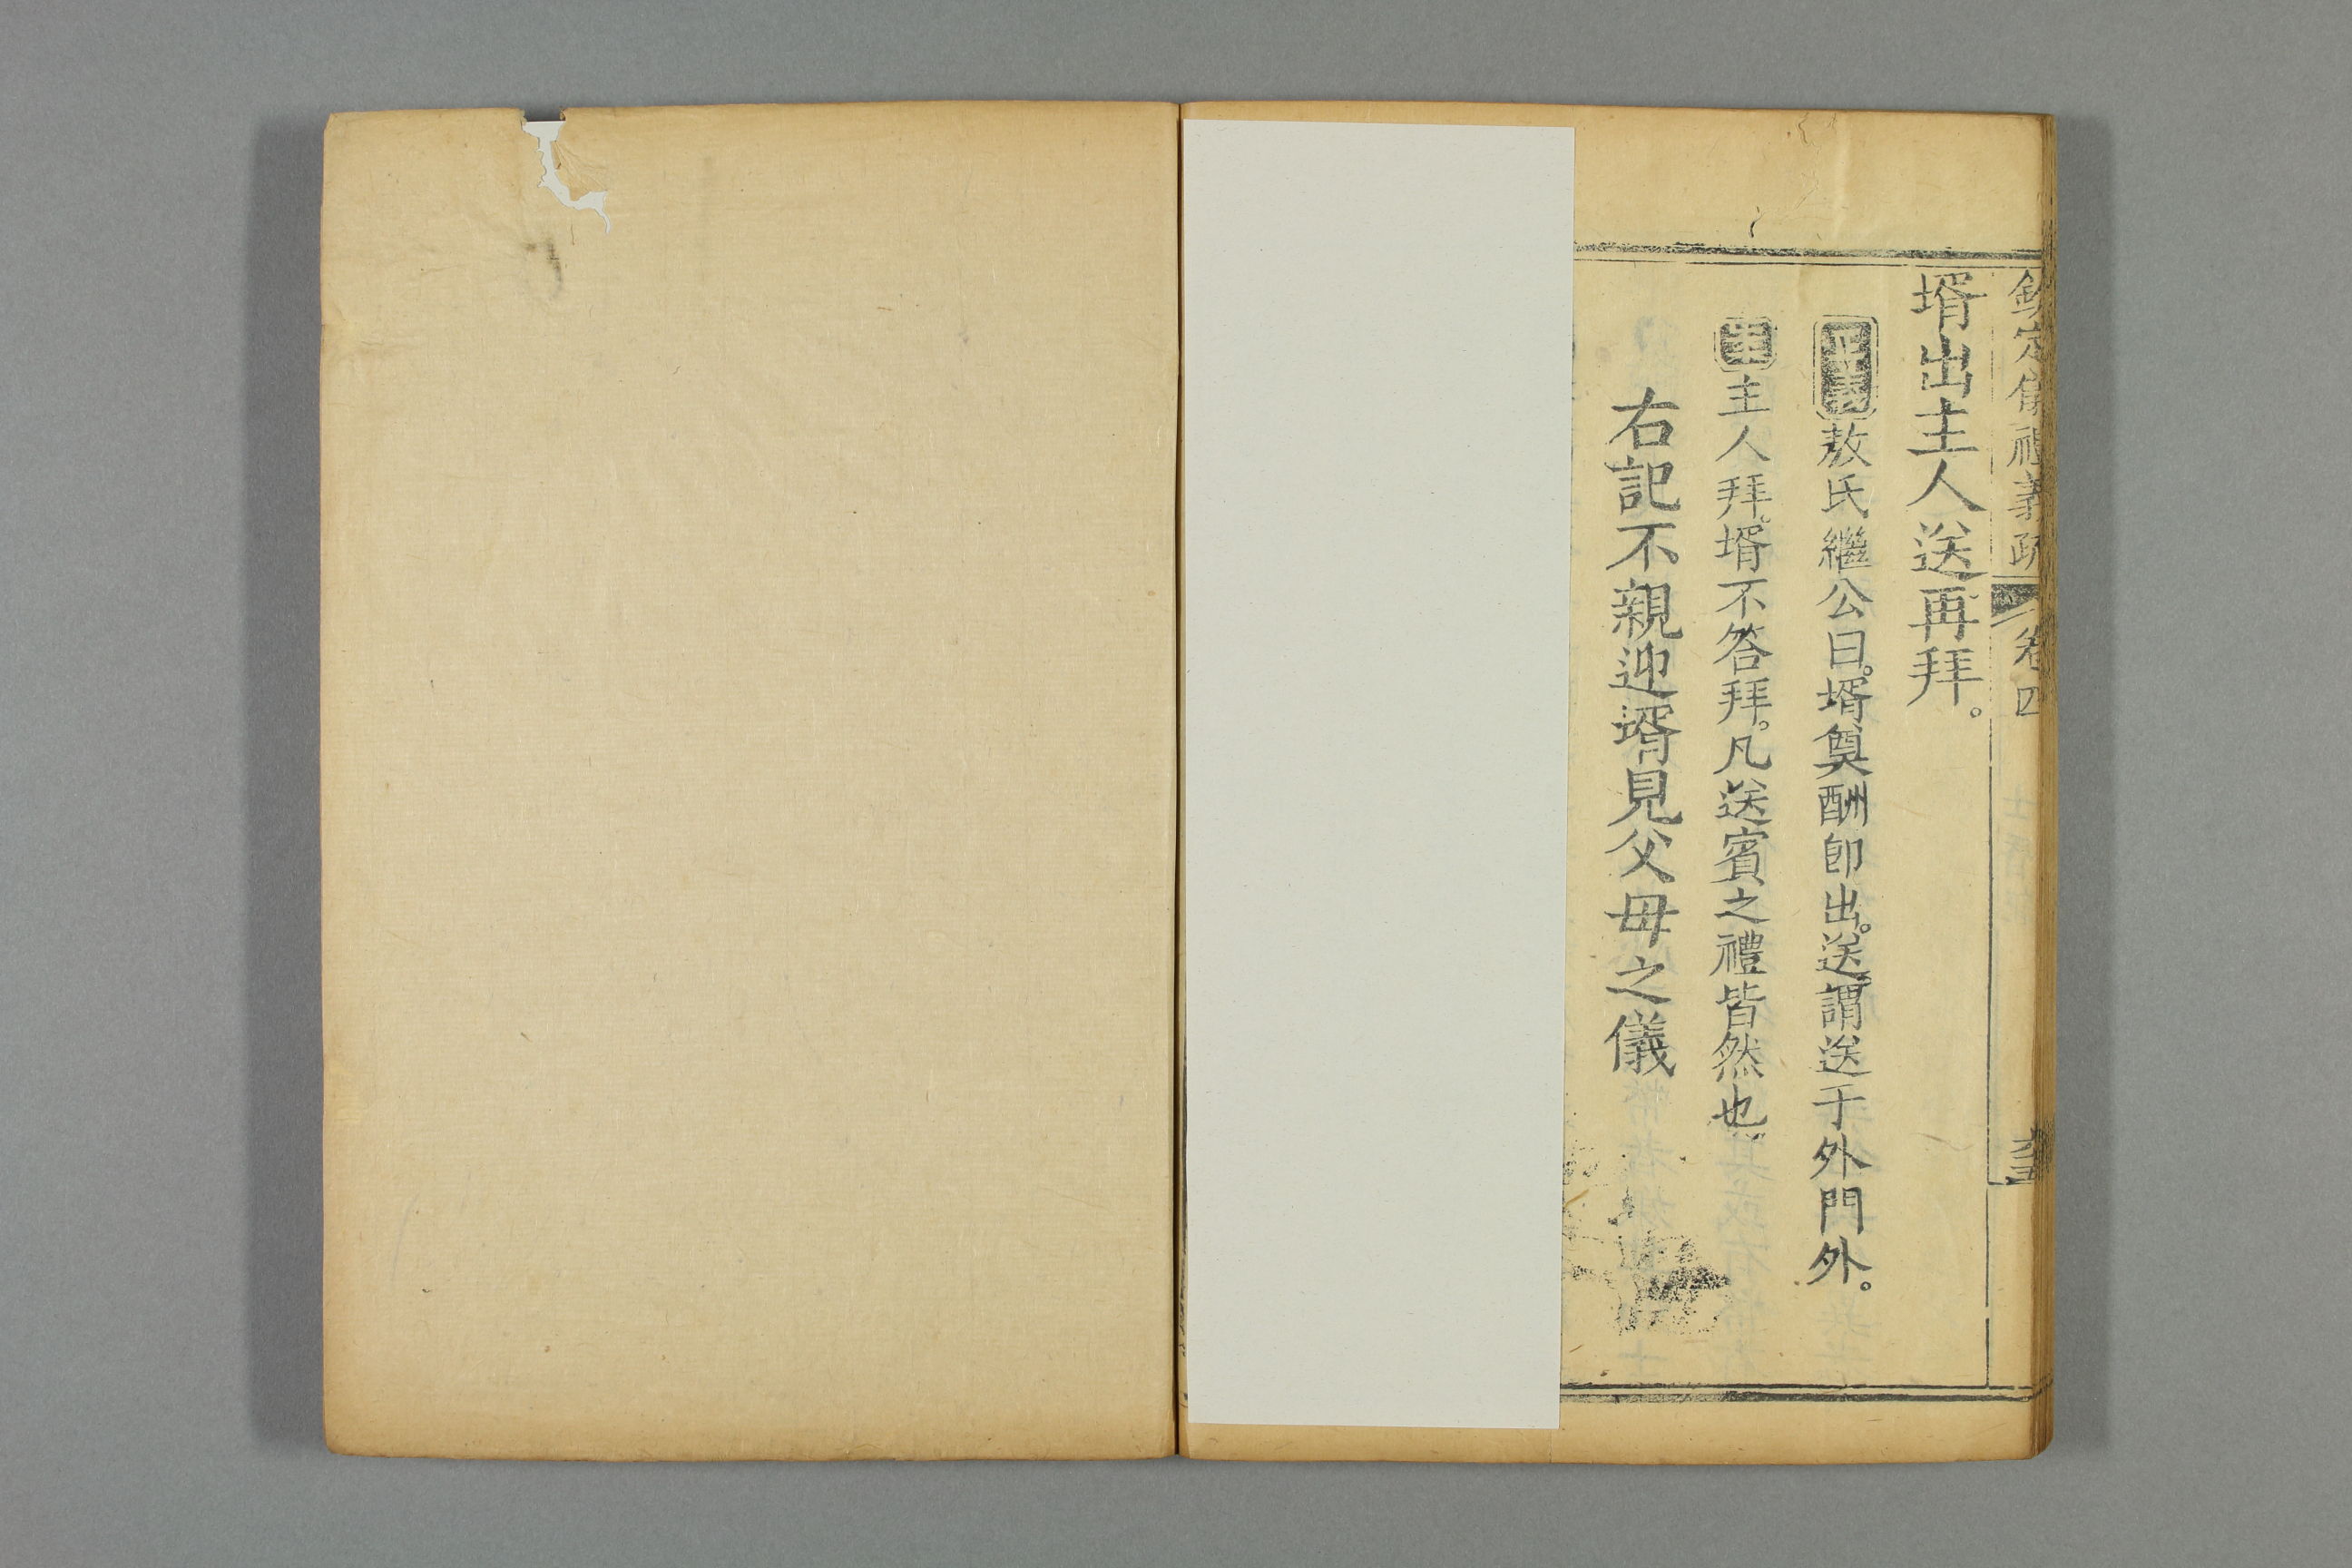 欽定儀禮義疏 卷四 
壻出主人送再拜。
正義敖氏繼公曰。壻奠酬卽出。送謂送于外門外。
主人拜。壻不答拜。凡送賓之禮皆然也
右記不親迎壻見父母之儀